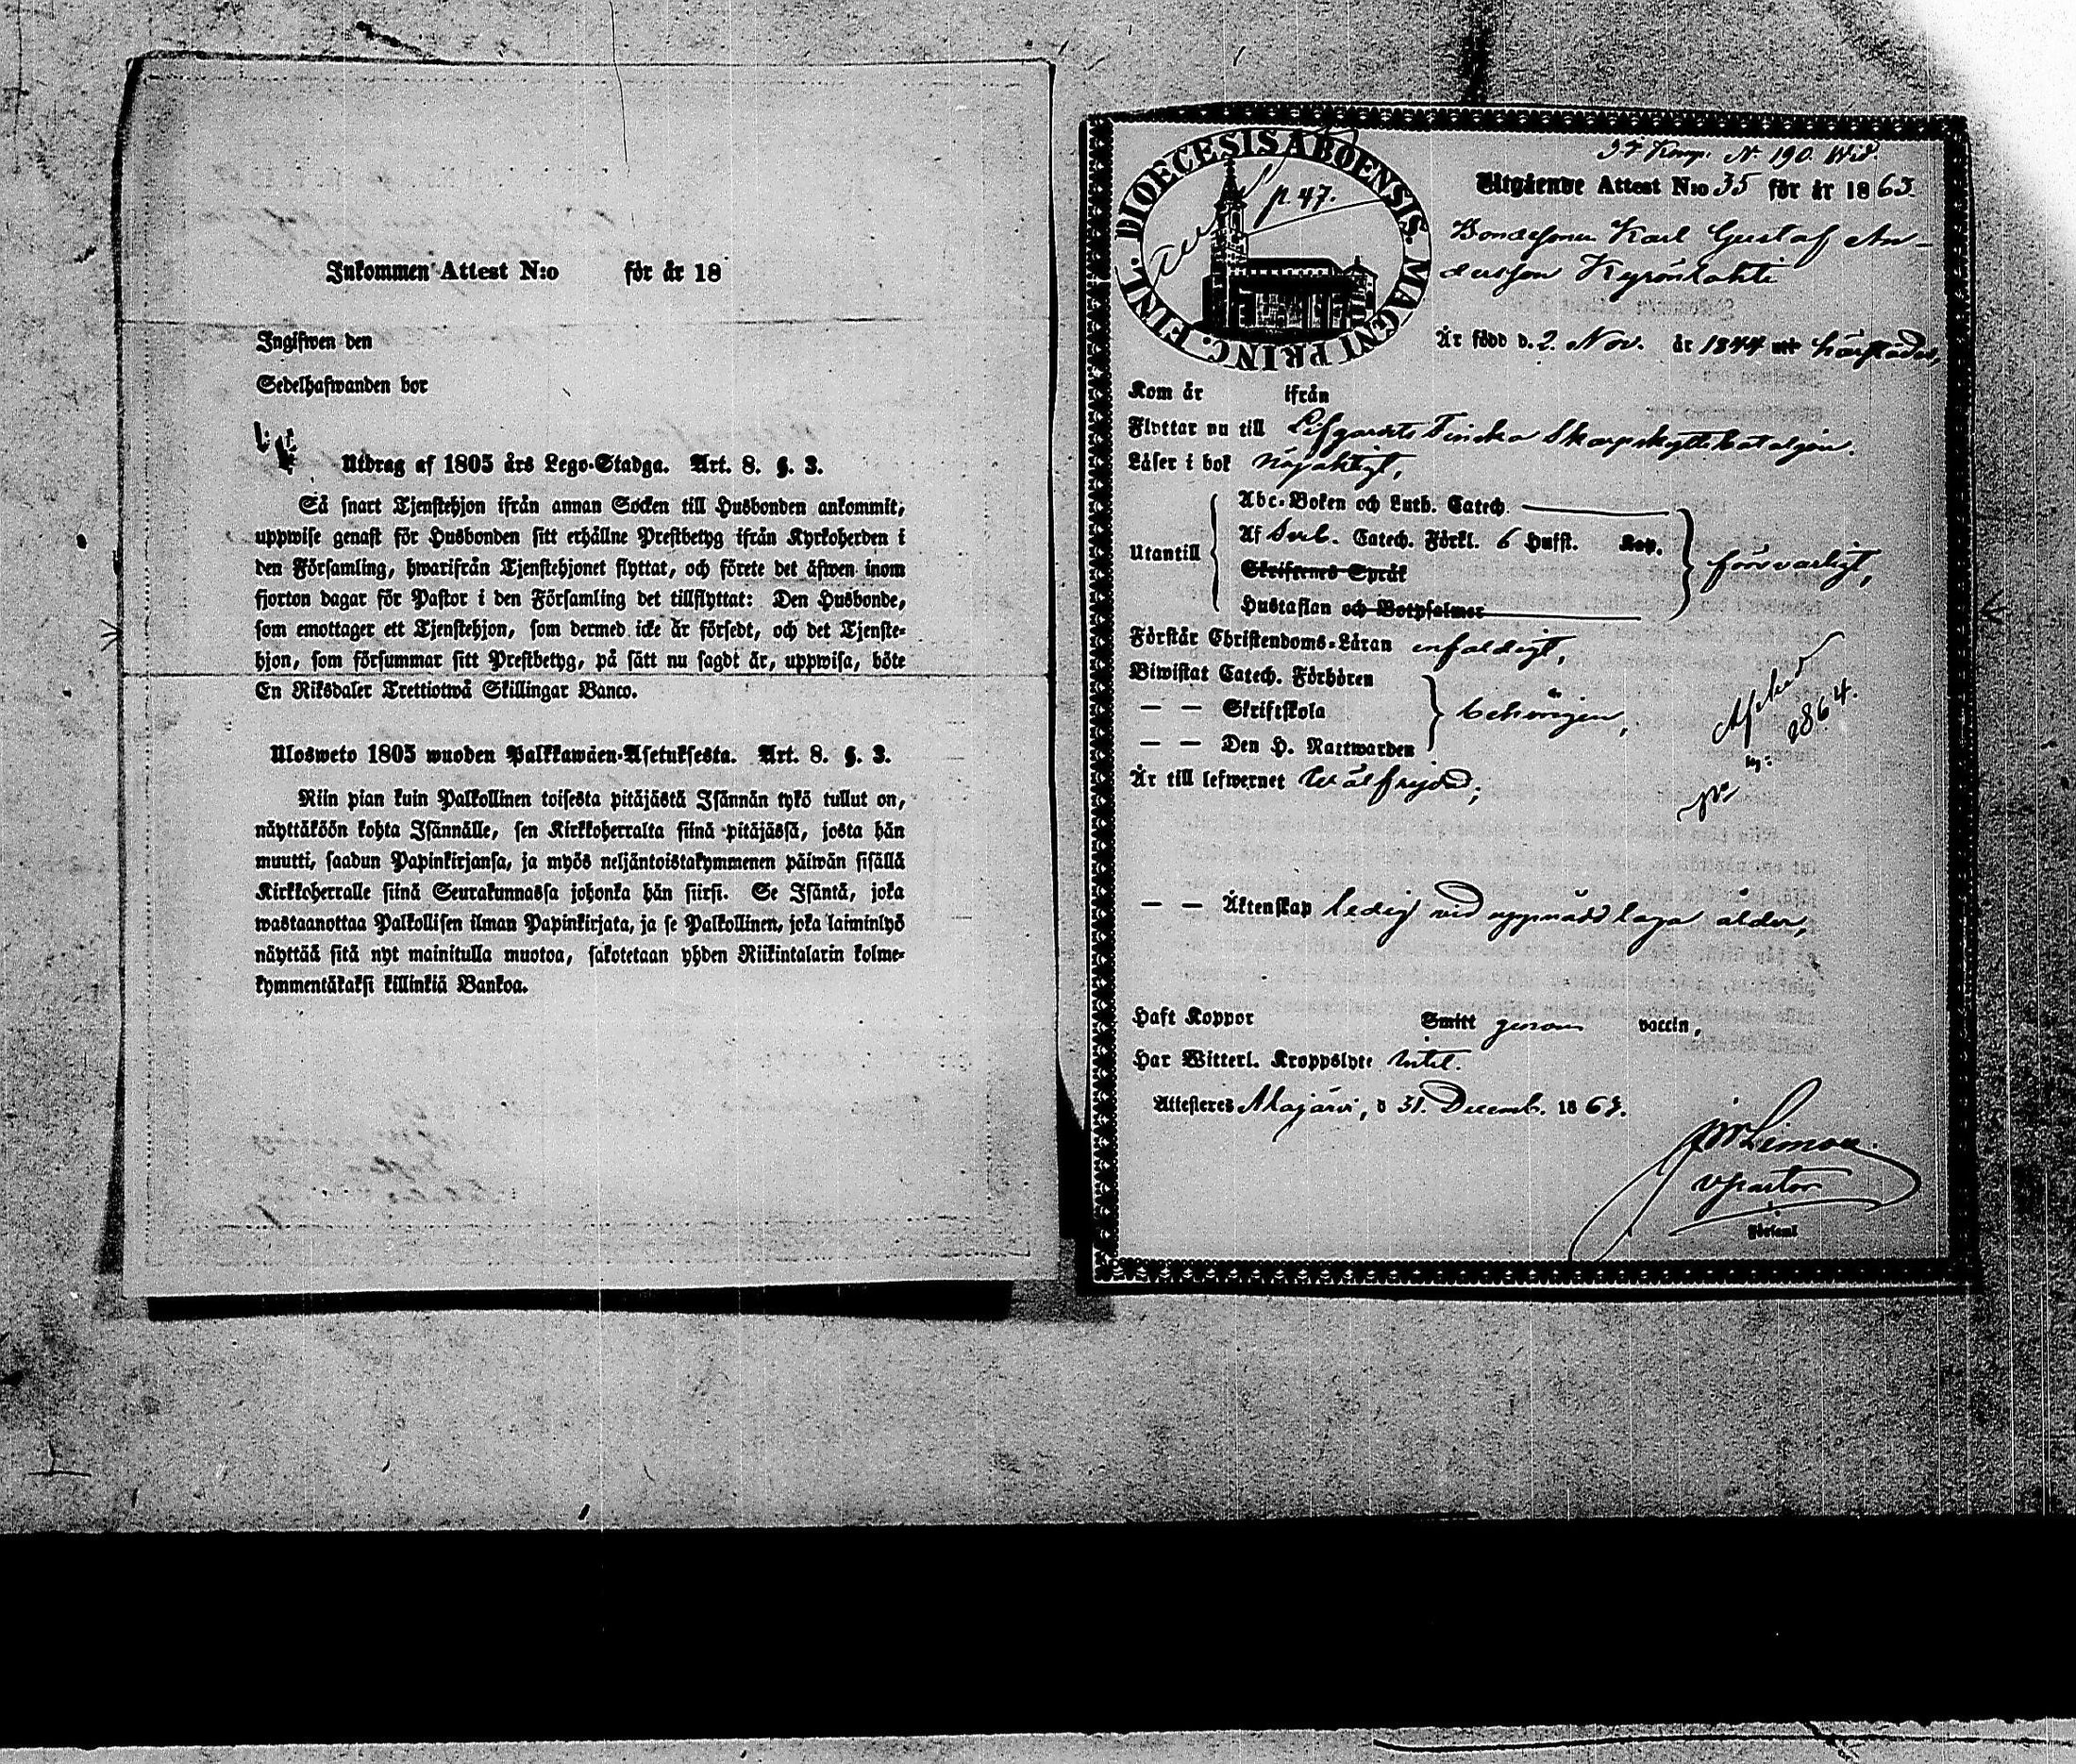 Inkommen Attest N:o för år 18
Ingifwen den
Sedelhafwanden bor
Utdrag af 1805 års Lego-Stadga. Art. 8. §. 3.
Så snart Tjenstehjon ifrån annan Socken till Husbonden ankommit,
uppwise genast för Husbonden sitt erhållne Prestbetyg ifrån Kyrkoherden i
den Församling, hwarifrån Tjenstehjonet flyttat, och förete det äfwen inom
fjorton dagar för Pastor i den Församling det tillflyttat: Den Husbonde,
som emottager ett Tjenstehjon, som dermed icke är försedt, och det Tjenste-
hjon, som försummar sitt Prestbetyg, på sätt nu sagdt är, uppwisa, böte
En Riksdaler Trettiotwå Skillingar Banco.
Ulosweto 1805 wuoden Palkkawäen-Asetuksesta. Art. 8. §. 3.
Niin pian kuin Palkollinen toisesta pitäjästä Isännän tykö tullut on,
näyttäköön kohta Isännälle, sen Kirkkoherralta siinä pitäjässä, josta hän
muutti, saadun Papinkirjansa, ja myös neljäntoistakymmenen päiwän sisällä
Kirkkoherralle siinä Seurakunnassa johonka hän siirsi. Se Isäntä, joka
wastaanottaa Palkollisen ilman Papinkirjata, ja se Palkollinen, joka laiminlyö
näyttää sitä nyt mainitulla muotoa, sakotetaan yhden Riikintalarin kolme-
kymmentäkaksi killinkiä Bankoa.
DIOECESIS ABOENSIS. MAGNI PRINC. FINL.
p. 47.
Komp. N. 190.
Utgående Attest N:o 35 för år 1863.
Bondesonen Karl Gustaf An-
dersson Kyrönlahti
Är född d. 2. Nov. år 1844 härstädes,
Kom år ifrån
Flyttar nu till Lifgardets Finska Skarpskyttebataljon.
Läser i bok nöjaktigt,
Abc-Boken och Luth. Catech.
Af Sveb. Catech. Förkl. 6 Hufst. Kap.
Utantill
Skriftenes Språk
försvarligt,
Hustaflan och Botpsalmer
Förstår Christendoms-Läran enfaldigt,
Biwistat Catech. Förhören
— — Skriftskola
behörigen,
— — Den H. Nattwarden
Afsked
1864.
Är till lefwernet wälfrejdad;
— — Äktenskap ledig vid uppnådd laga ålder,
Haft Koppor Smitt genom vaccin,
Har Witterl. Kroppslyte intet.
Attesteres Alajärvi, d 31. Decemb. 1863.
v pastor
Församl